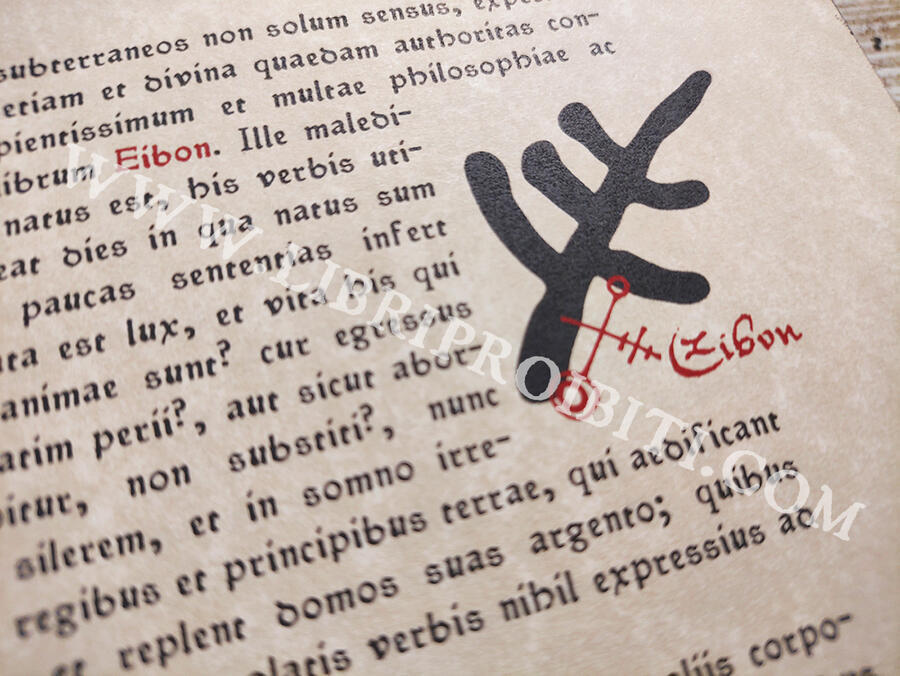 subterraneos non solum sensus,
etiam et divina quaedam authoritas con-
pientissimum et multae philosophiae ac
librum Eibon. Ille maledi-
natus est, his verbis uti-
eat dies in qua natus sum
paucas sententias infert
ta est lux, et vita his qui
animae sunt? cur egressus
atim perii?, aut sicut abor-
bitur, non substiti?, nunc
silerem, et in somno irre-
regibus et principibus terrae, qui aedificant
et replent domos suas argento; quibus
olatis verbis nihil expressius ac
aliis corpo-
Eibon
WWW.LIBRIPROIBITI.COM